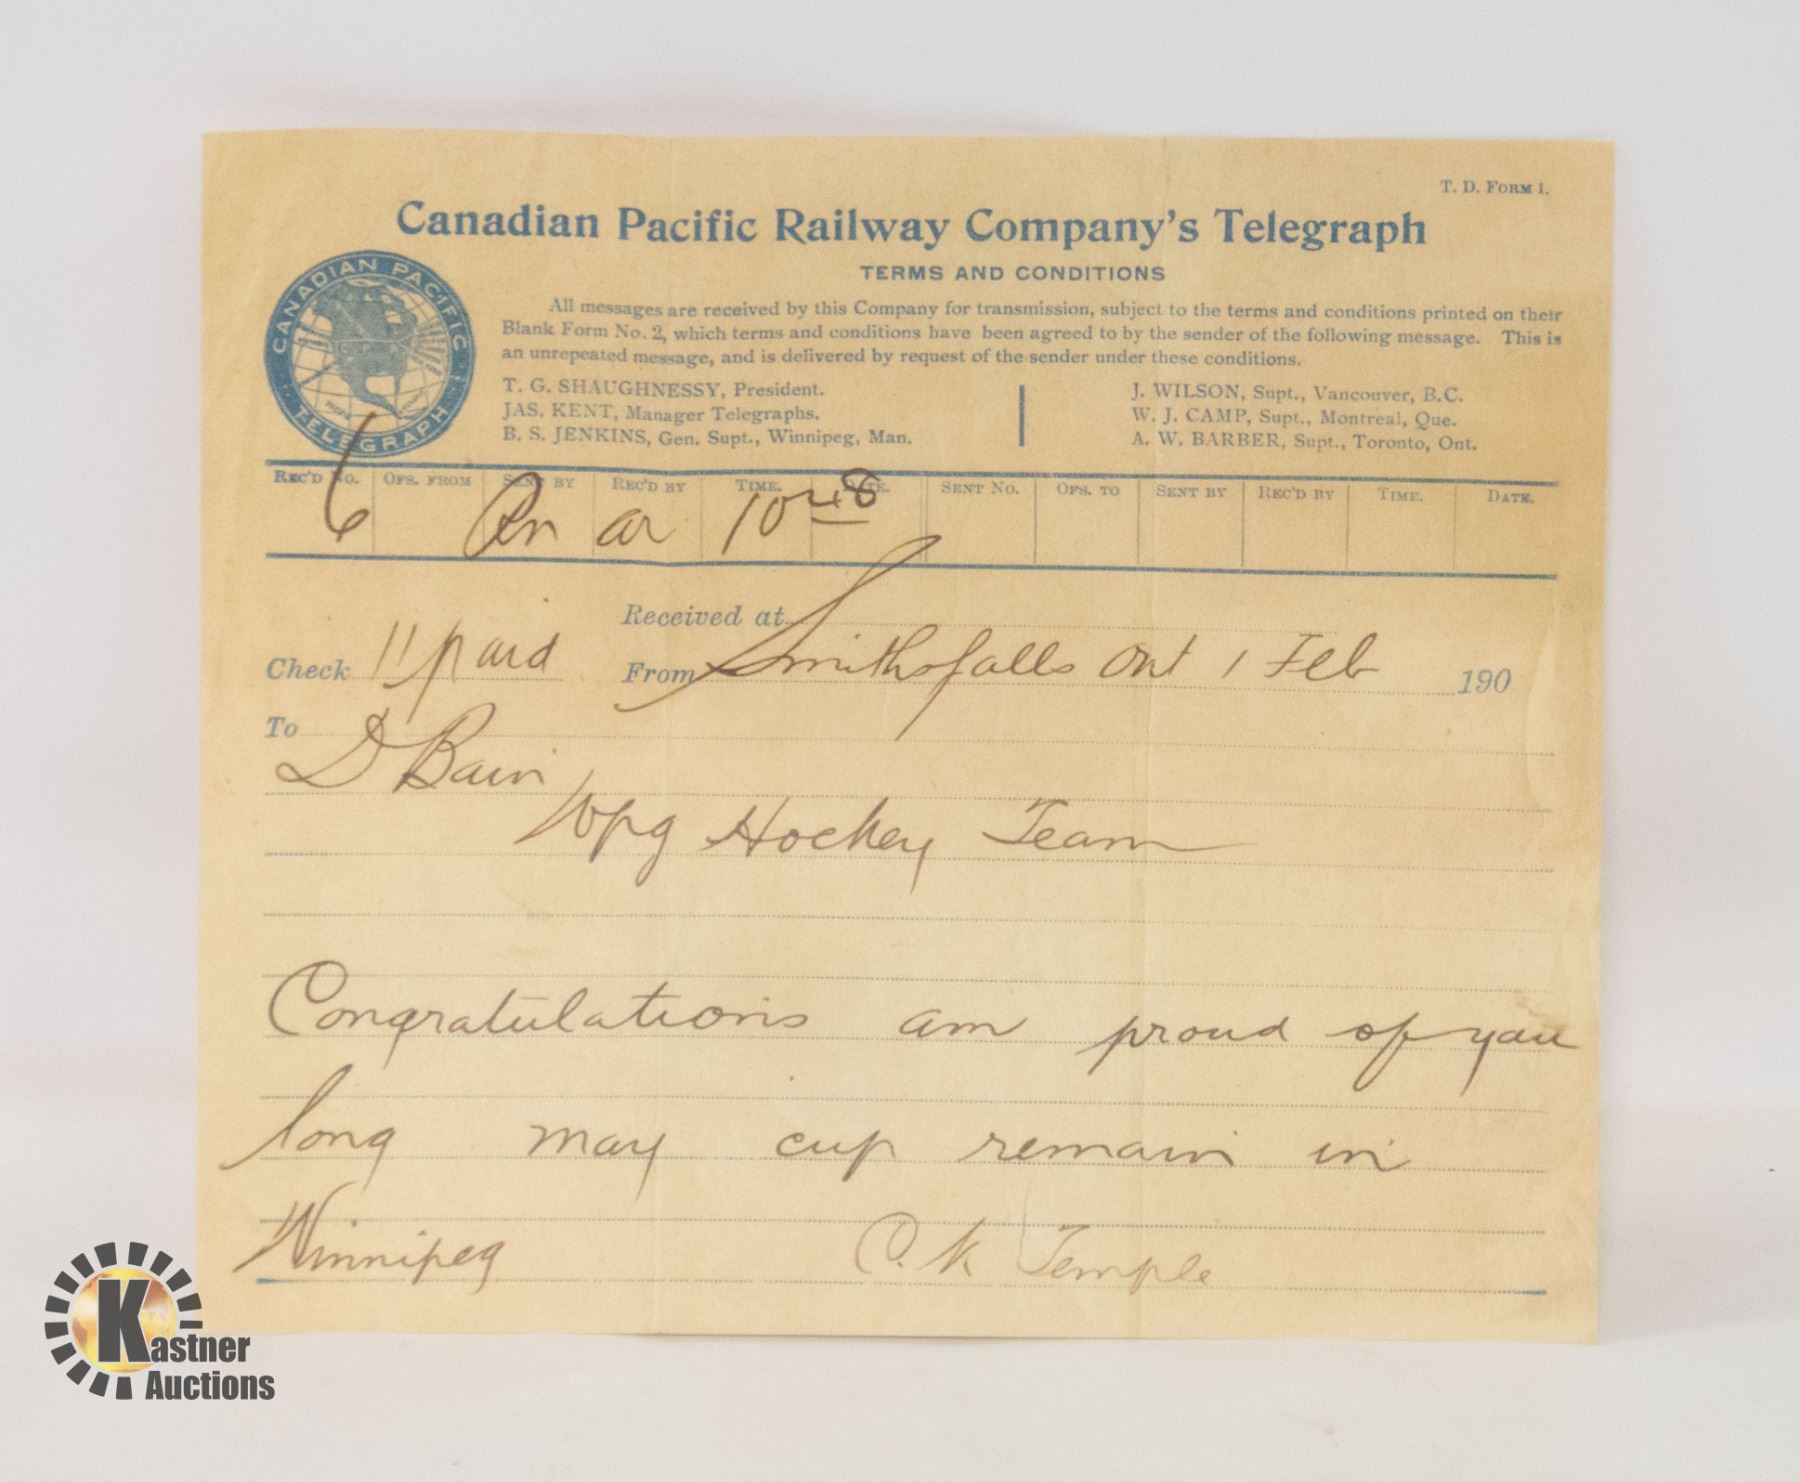 T. D. FORM 1.
Canadian Pacific Railway Company's Telegraph
TERMS AND CONDITIONS
CANADIAN PACIFIC
TELEGRAPH
All messages are received by this Company for transmission, subject to the terms and conditions printed on their
Blank Form No. 2, which terms and conditions have been agreed to by the sender of the following message. This is
an unrepeated message, and is delivered by request of the sender under these conditions.
T. G. SHAUGHNESSY, President.
JAS. KENT, Manager Telegraphs.
B. S. JENKINS, Gen. Supt., Winnipeg, Man.
J. WILSON, Supt., Vancouver, B.C.
W. J. CAMP, Supt., Montreal, Que.
A. W. BARBER, Supt., Toronto, Ont.
REC'D NO. OFS. FROM SENT BY REC'D BY TIME. DATE. SENT NO. OFS. TO SENT BY REC'D BY TIME. DATE.
6 ar 10 48
Received at
Check 11 paid From Smithsfalls Ont 1 Feb 190
To
D Bain
Wpg Hockey Team
Congratulations am proud of you
long may cup remain in
Winnipeg C. K Temple
Kastner
Auctions